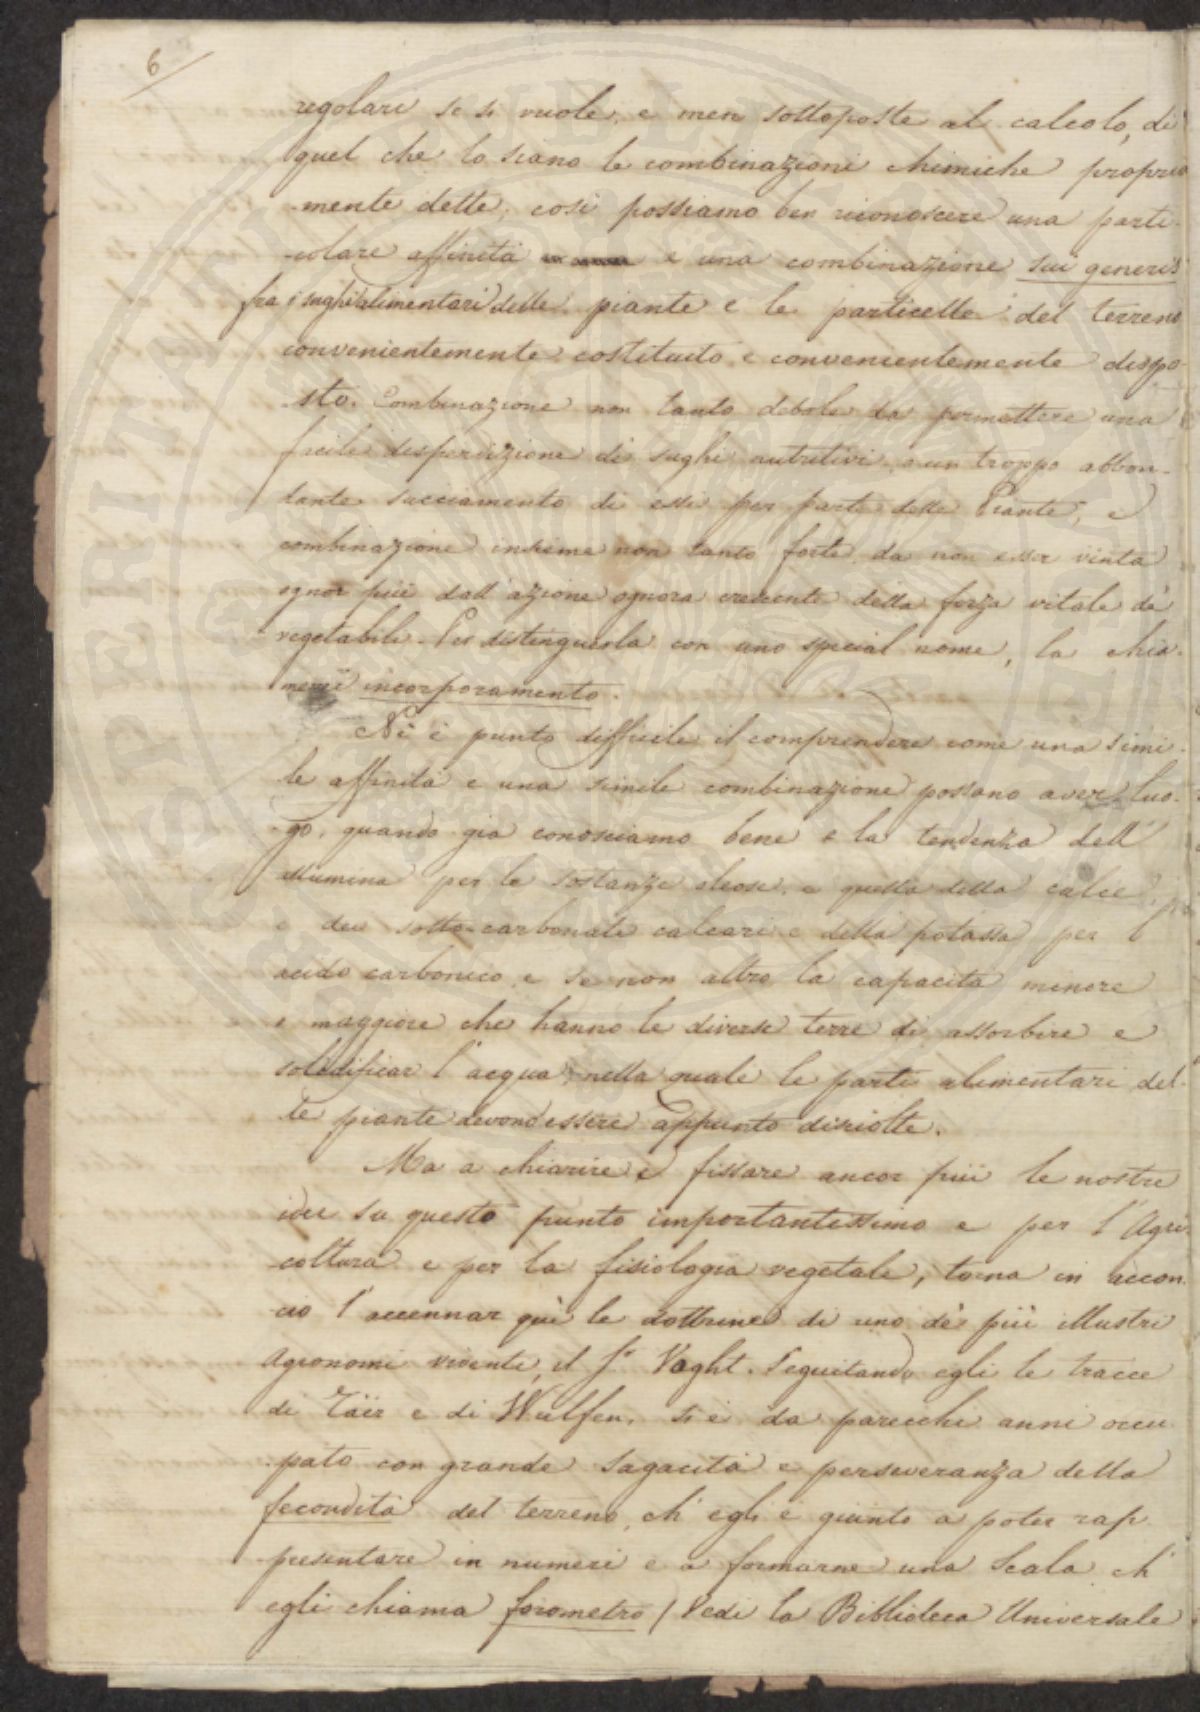 6
regolari se si vuole, e men sottoposte al calcolo, di
quel che lo siano le combinazioni chimiche propria
-mente dette, così possiamo ben riconoscere una parti-
-colare affinità e una combinazione sui generis
fra i sughi alimentari delle piante e le particelle del terreno
convenientemente costituito e convenientemente dispo-
-sto. Combinazione non tanto debole da permettere una
facile disperdizione di sughi nutritivi, o un troppo abbon-
dante succiamento di essi per parte delle Piante, e
combinazione insieme non tanto forte da non esser vinta
ognor più dall'azione ognora crescente della forza vitale dè
vegetabili. Per distinguerla con uno special nome, la chia-
merei incorporamento.
Nè è punto difficile il comprendere come una simi-
le affinità e una simile combinazione possano aver luo-
-go, quando già conosciamo bene e la tendenza dell'
allumina per le sostanze oleose, e quella della calce,
e dei sotto-carbonati calcari e della potassa per l'
acido carbonico, e se non altro la capacità minore
o maggiore che hanno le diverse terre di assorbire e
solidificar l'acqua nella quale le parti alimentari del-
le piante devono essere appunto disciolte.
Ma a chiarire e fissare ancor più le nostre
idee su questo punto importantissimo e per l'Agri-
-coltura e per la fisiologia vegetale, torna in accon-
-cio l'accennar quì le dottrine di uno dè più illustri
Agronomi viventi, il Sr Voght. Seguitando egli le tracce
di Täer e di Wulfen, si è da parecchi anni occu
-pato con grande sagacità e perseveranza della
fecondità del terreno, ch'egli è giunto a poter rap
-presentare in numeri e a formarne una Scala ch'
egli chiama forometro (Vedi la Biblioteca Universale